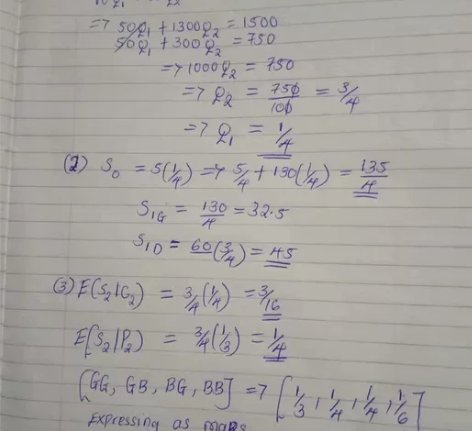 => 50Q₁ + 1300Q₂ = 1500
50Q₁ + 300Q₂ = 750
=> 1000Q₂ = 750
=> Q₂ = 750/100 = 3/4
=> Q₁ = 1/4
(2) S₀ = 5(1/4) => 5/4 + 130(1/4) = 135/4
S₁G = 130/4 = 32.5
S₁D = 60(3/4) = 45
(3) E(S₂|G₂) = 3/4(1/4) = 3/16
E[S₂|P₂) = 3/4(1/3) = 1/4
[GG, GB, BG, BB] => [1/3, 1/4, 1/4, 1/6]
Expressing as